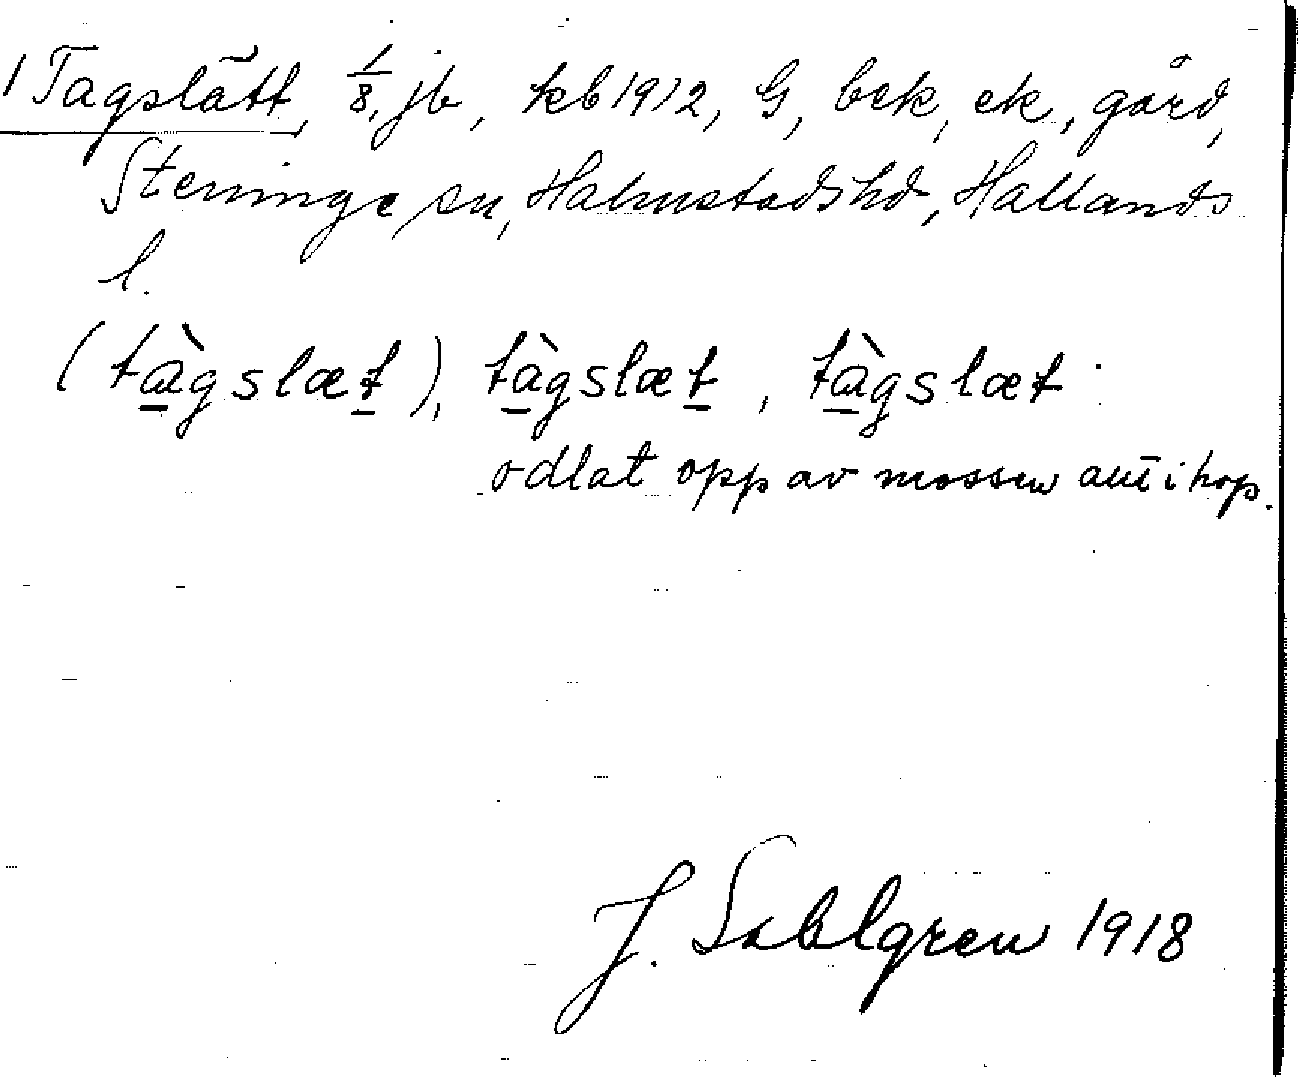 1 Tagslätt, 1/8, jb, kb 1912, G, bek, ek, gård,
Steninge sn, Halmstads hd, Hallands
l.
(tà̱gslæṯ), tà̱gslæṯ, tà̱gslæt
odlat opp av mossen allt ihop.
J. Sahlgren 1918